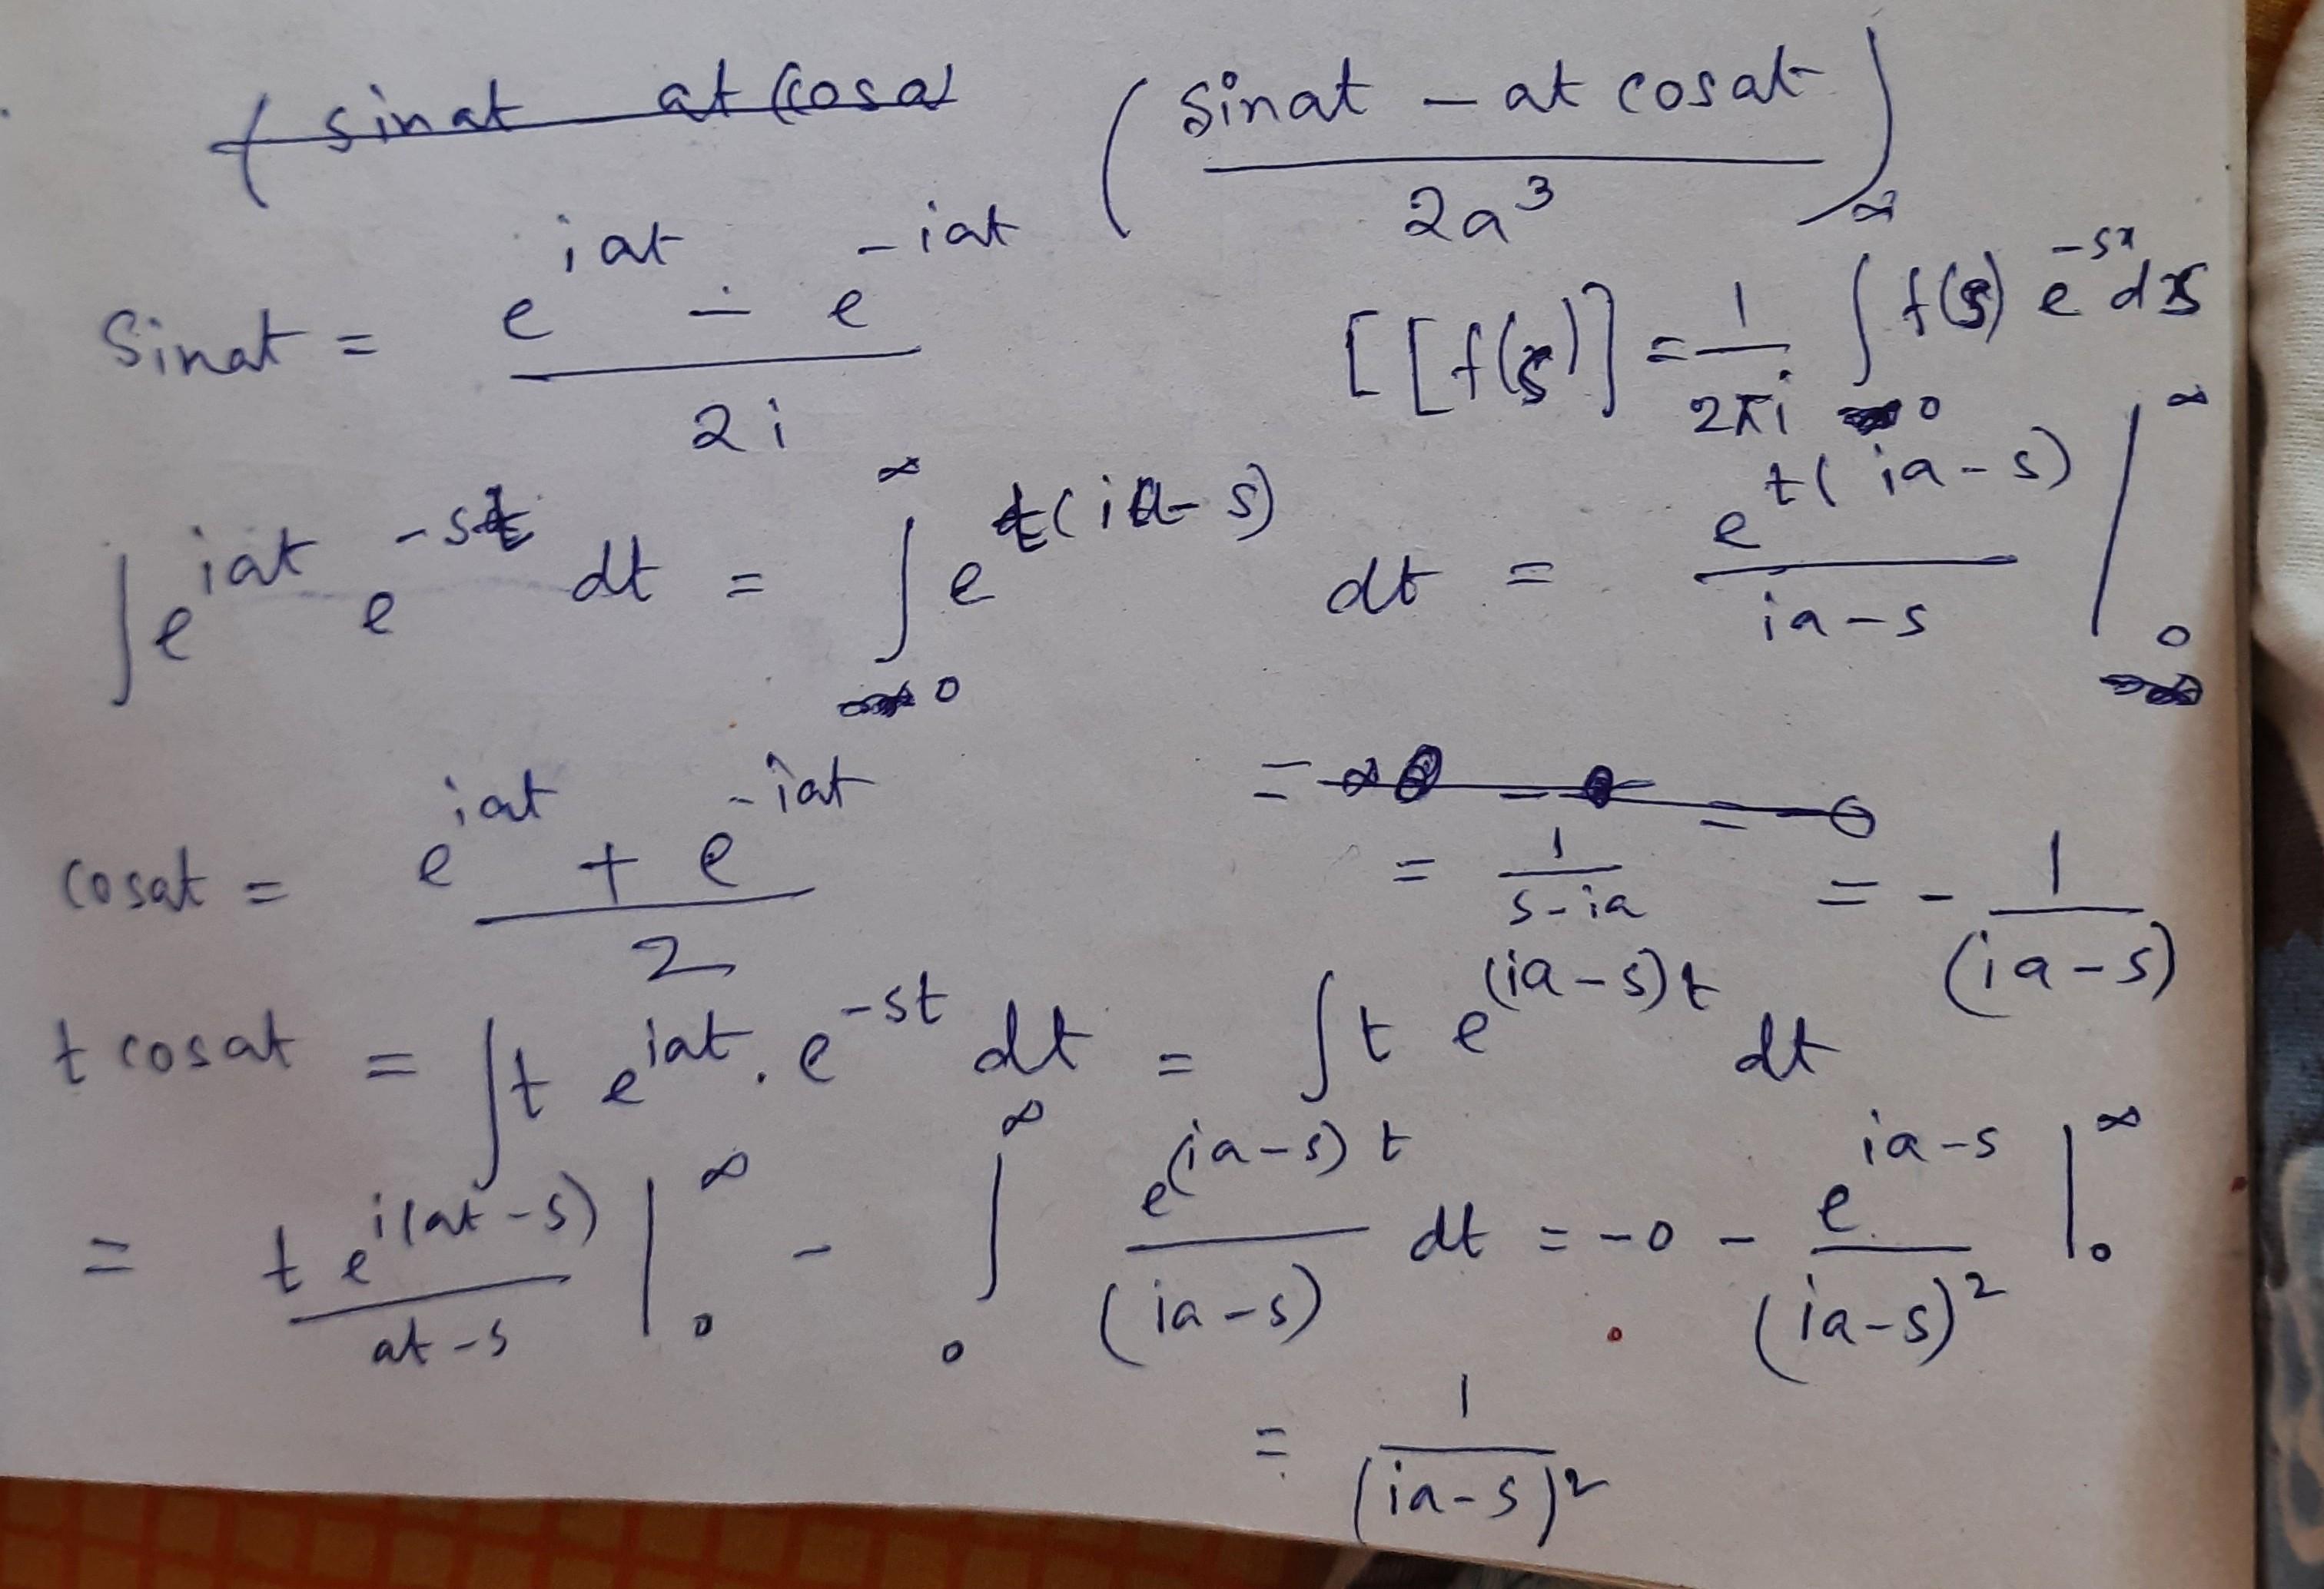 ( sinat at (cosa
( (sinat - at cosat) / 2a³ )
Sinat = (e^{iat} - e^{-iat}) / 2i
[ [f(s)] = 1/2πi ∫_0^∞ f(s) e^{-sx} ds
∫ e^{iat} e^{-st} dt = ∫_0^∞ e^{t(ia-s)} dt = e^{t(ia-s)} / (ia-s) |_0^∞
cosat = (e^{iat} + e^{-iat}) / 2
= 1/(s-ia) = - 1/(ia-s)
t cosat = ∫ t e^{iat} . e^{-st} dt = ∫ t e^{(ia-s)t} dt
= t e^{i(at-s)} / (at-s) |_0^∞ - ∫_0^∞ e^{(ia-s)t} / (ia-s) dt = -0 - e^{ia-s} / (ia-s)² |_0^∞
= 1/(ia-s)²